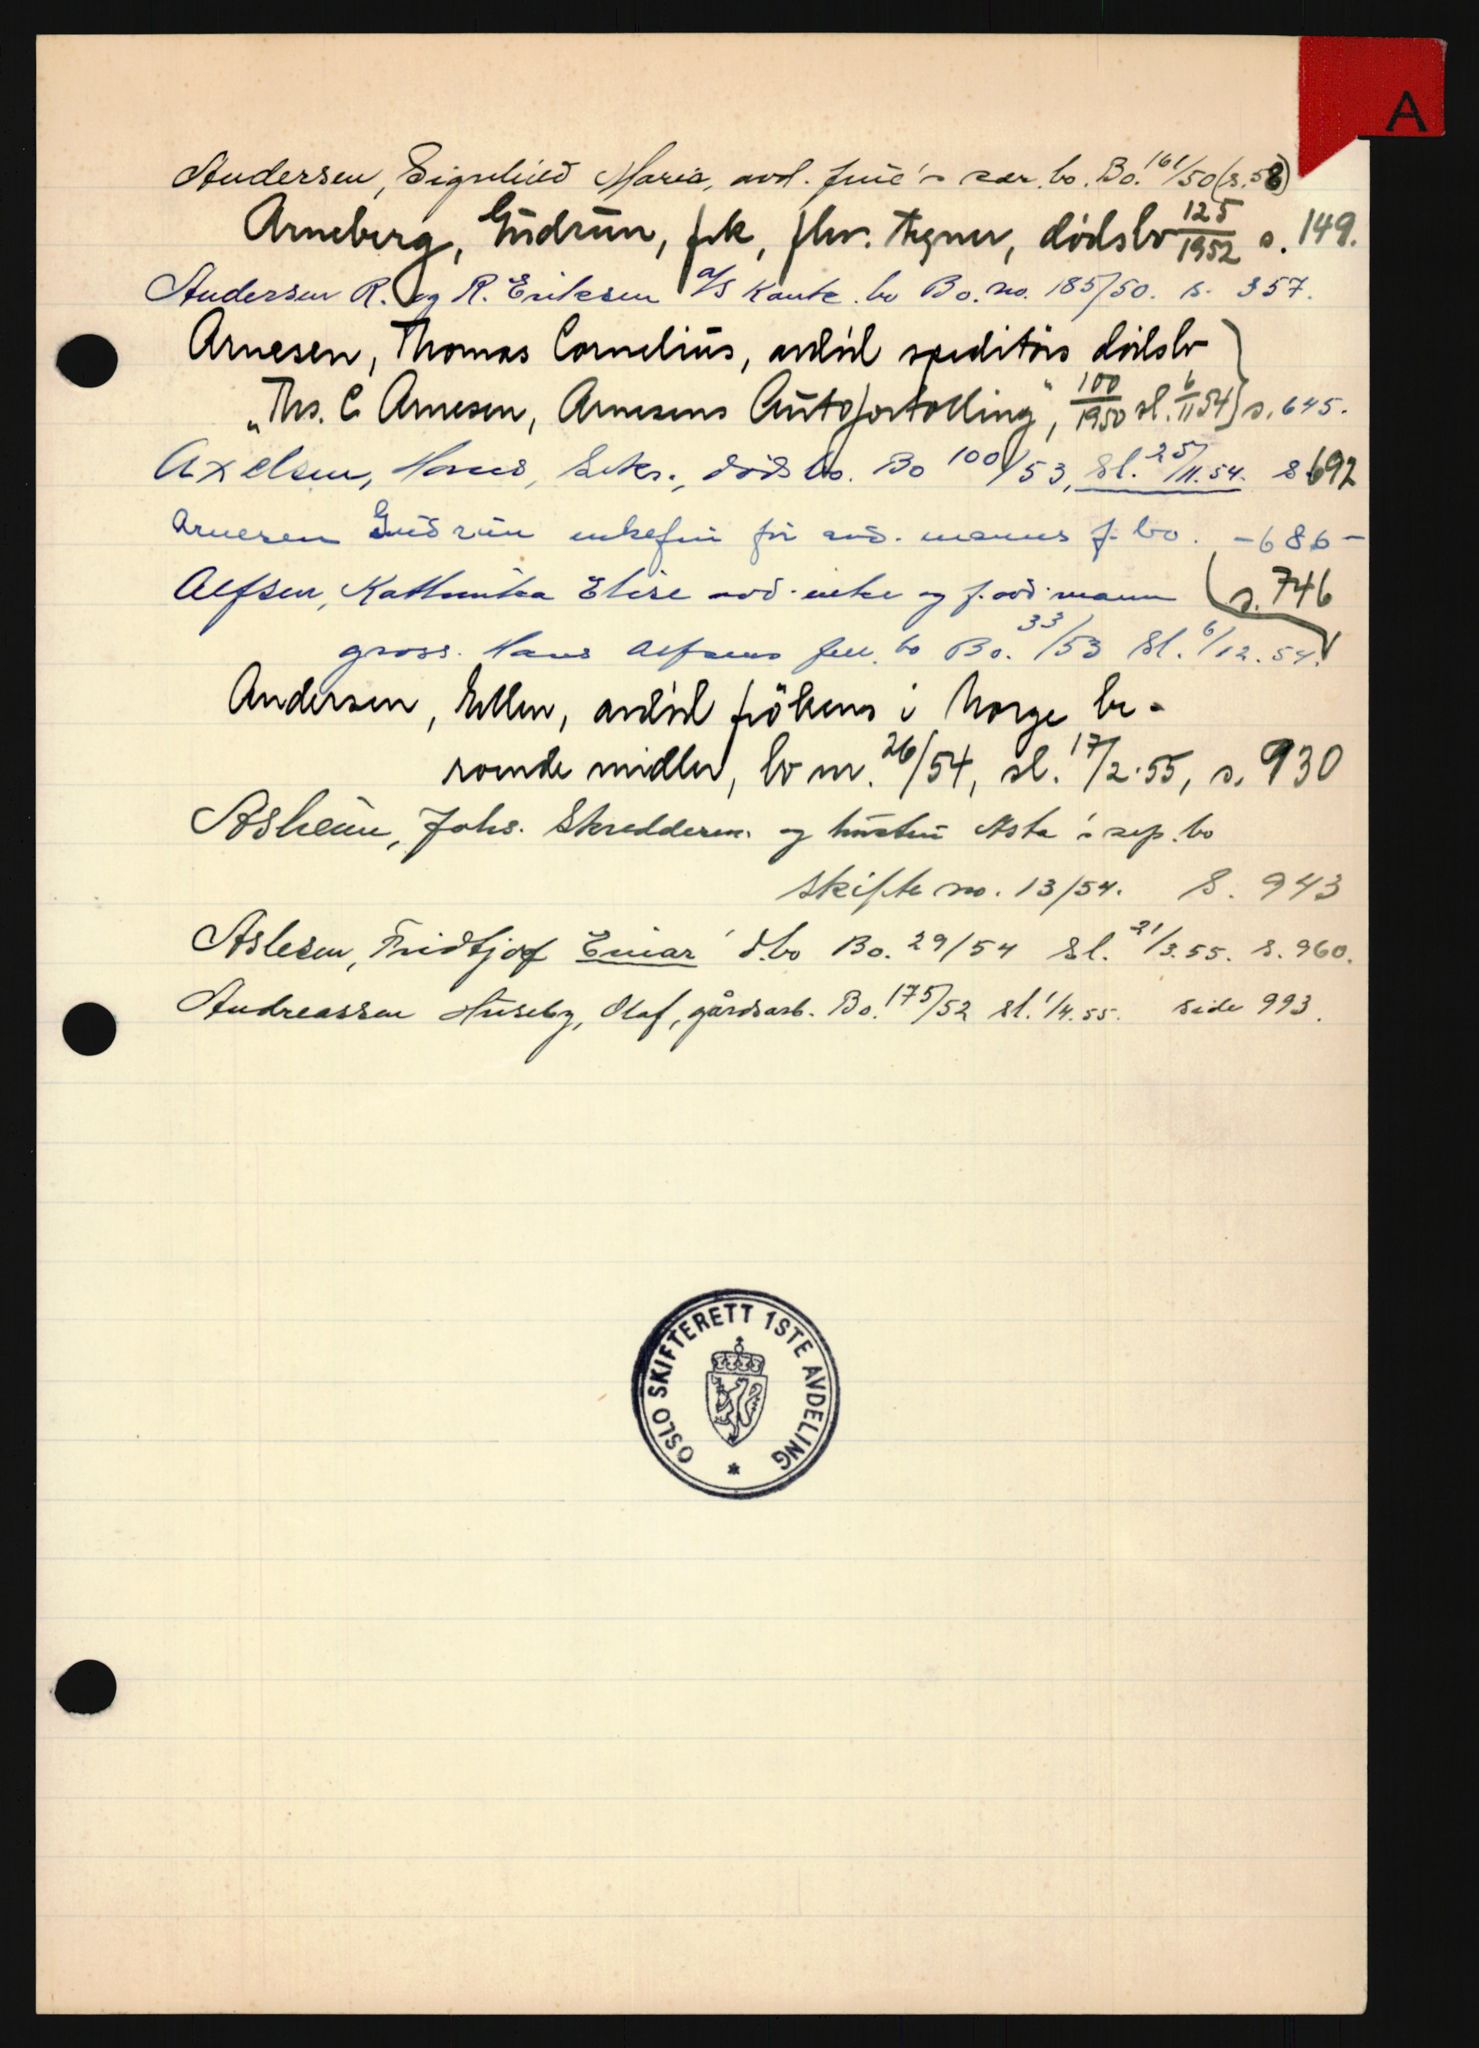 A
Andersen, Signhild Maria, avd. frue's sær. bo. Bo. 161/50 (s. 58)
Arneberg, Gudrun, frk, fhv. tegner, dødsbo 125/1952 s. 149.
Andersen R. og R. Eriksen A/S konk. bo Bo. no. 185/50. s. 357.
Arnesen, Thomas Cornelius, avdød speditørs dødsbo
"Ths. C Arnesen, Arnesens Autofortolling", 100/1950 sl. 6/11 54 s. 645.
Axelsen, Hans, sekr., dødsbo. Bo 100/53, sl. 25/11.54. s 692
Arnesen Gudrun enkefru for avd. manns f. bo. - 686 -
Alfsen, Kathinka Elise avd. enke og f. avd. mann s. 746
gross. Hans Alfsens fell. bo Bo. 33/53 sl. 6/12.54.
Andersen, Ellen, avdød frökens i Norge be-
roende midler, bo nr. 26/54, sl. 17/2.55, s. 930
Asheim, Johs. Skredderm. og hustru Asta's sep. bo
skifte no. 13/54. S. 943
Aslesen, Fridtjof Einar d.bo Bo. 29/54 sl. 21/3.55. s. 960.
Andreassen Huseby, Olaf, gårdsarb. Bo. 175/52 sl. 1/4.55. side 993.
OSLO SKIFTERETT 1STE AVDELING